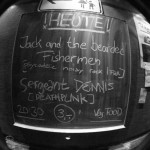 !HEUTE!
Jack and the bearded
Fishermen
Rock
Sergeant DENNIS
[DEATHPUNK]
20:30
3,-